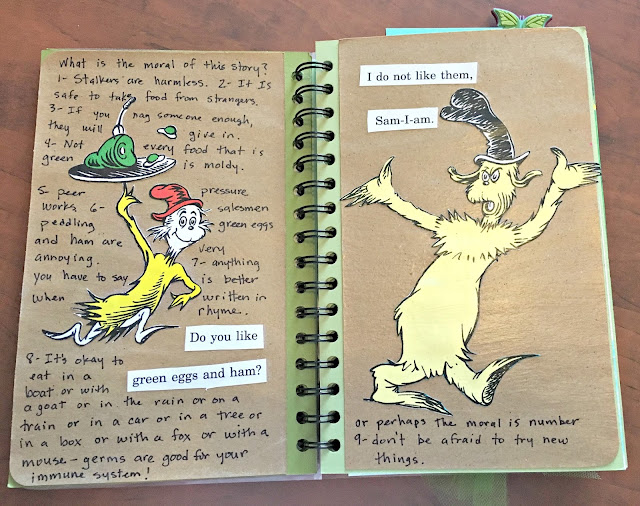 What is the moral of this story?
1- Stalkers are harmless. 2- It Is
safe to take food from strangers.
3- If you nag someone enough,
they will give in.
4- Not every food that is
green is moldy.
5- peer pressure
works. 6- salesmen
peddling green eggs
and ham are very
annoying. 7- anything
you have to say is better
when written in
rhyme.
Do you like
green eggs and ham?
8- It's okay to
eat in a
boat or with
a goat or in the rain or on a
train or in a car or in a tree or
in a box or with a fox or with a
mouse - germs are good for your
immune system!
I do not like them,
Sam-I-am.
or perhaps the moral is number
9- don't be afraid to try new
things.